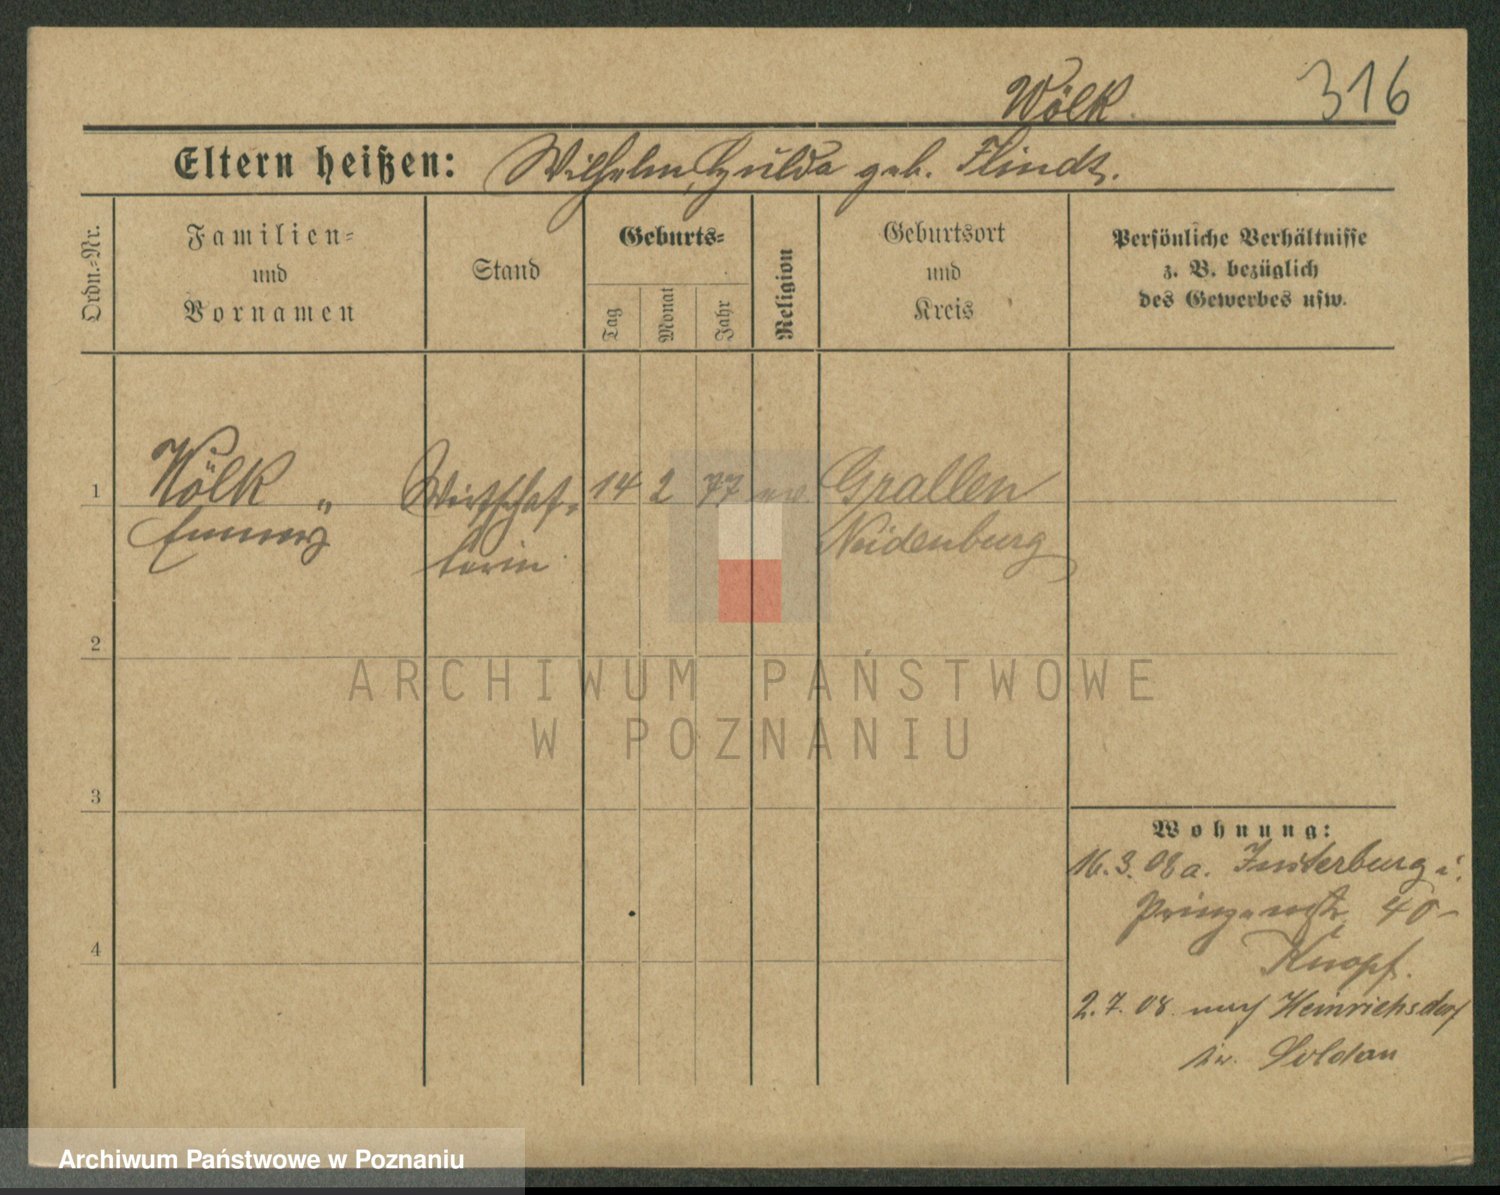 Wölk. 316
Eltern heißen: Wilhelm, Hulda geb. Flindt.
Ordn.-Nr.
Familien-
und
Vornamen
Stand
Geburts-
Tag
Monat
Jahr
Religion
Geburtsort
und
Kreis
Persönliche Verhältnisse
z. B. bezüglich
des Gewerbes usw.
1 Wölk " Wirtschaf- 14 2 77 ev Grallen
Emma terin Neidenburg
2
ARCHIWUM PAŃSTWOWE
W POZNANIU
3
Wohnung:
16. 3. 08 a. Insterburg i.
Prinzenstr 40-
Knopf.
4
2. 7. 08 nach Heinrichsdorf
Soldau
Archiwum Państwowe w Poznaniu